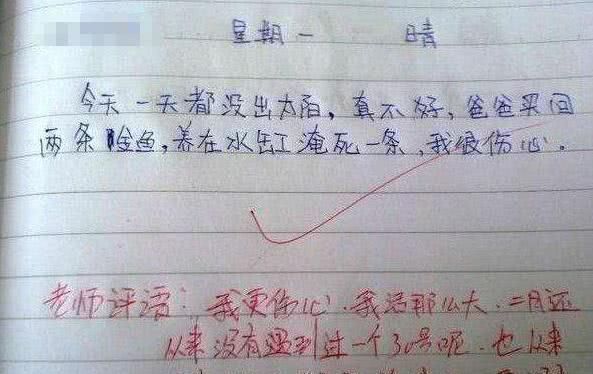 星期一 晴
今天一天都没出太阳,真不好,爸爸买回
两条金鱼,养在水缸淹死一条,我很伤心.
老师评语:我更伤心.我活那么大.二月还
从来没有遇到过一个30号呢.也从来